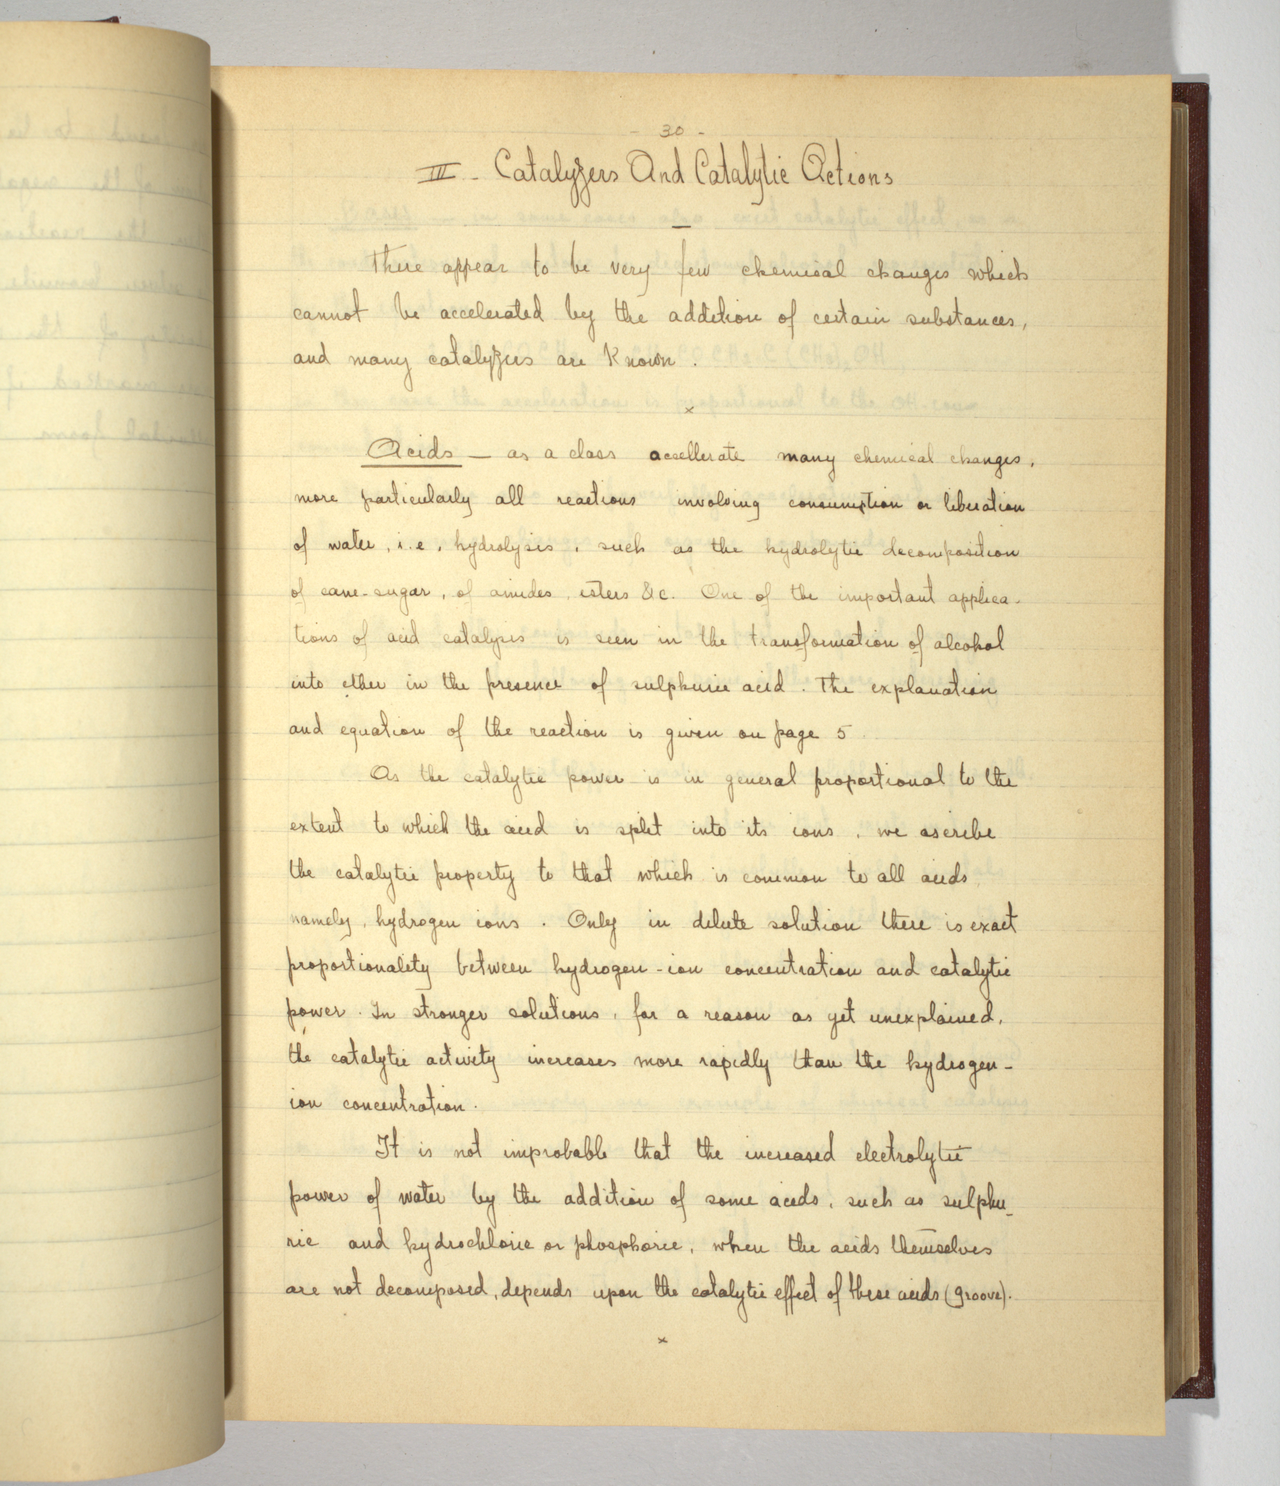 - 30 -
III - Catalyzers And Catalytic Actions
There appear to be very few chemical changes which
cannot be accelerated by the addition of certain substances,
and many catalyzers are Known.
x
Acids — as a class accellerate many chemical changes,
more particularly all reactions involving consumption or liberation
of water, i.e, hydrolysis, such as the hydrolytic decomposition
of cane-sugar, of amides, esters &c. One of the important applica-
tions of acid catalysis is seen in the transformation of alcohol
into ether in the presence of sulphuric acid. The explanation
and equation of the reaction is given on page 5
As the catalytic power is in general proportional to the
extent to which the acid is split into its ions, we ascribe
the catalytic property to that which is common to all acids
namely, hydrogen ions. Only in dilute solution there is exact
proportionality between hydrogen-ion concentration and catalytic
power. In stronger solutions, for a reason as yet unexplained,
the catalytic activity increases more rapidly than the hydrogen-
ion concentration.
It is not improbable that the increased electrolytic
power of water by the addition of some acids, such as sulphu-
ric and hydrochloric or phosphoric, when the acids themselves
are not decomposed, depends upon the catalytic effect of these acids (Groove).
x